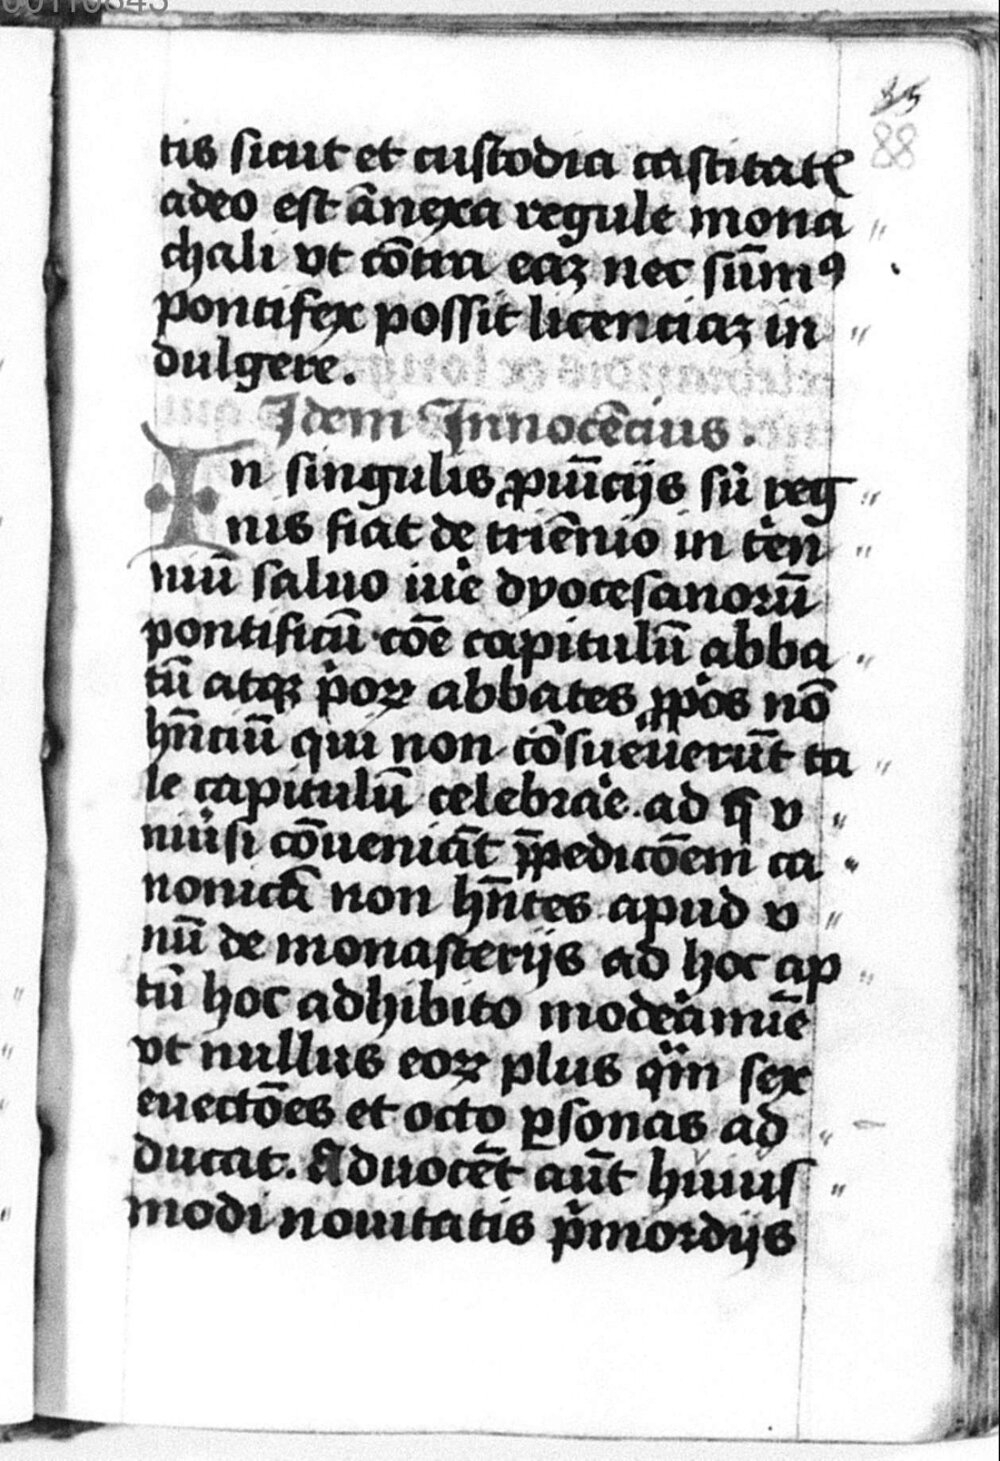 85
88
tis sicut et custodia castitatꝭ
adeo est ānexa regule mona
chali vt cōtra eaꝫ nec sūmꝰ
pontifex possit licenciaꝫ in
dulgere.
Idem Innocēcius.
In singulis ꝓuīcijs siͥ reg
nis fiat de triēnio in tͥen
niū saluo iuͬe dyocesanorū
pontificū cōe capitulū abba
tū atqꝫ pͥoꝝ abbates ꝓpͥos nō
hn̄ciū qui non cōsueuerūt ta
le capitulū celebraͬe ad qͣ v
niūsi cōueniāt p̄pedicōem ca
nonicā non hn̄tes apud v
nū de monasterijs ad hoc ap
tū hoc adhibito modeͬamīe
vt nullus eoꝝ plus qͣm sex
euectōes et octo ꝑsonas ad
ducat. Aduocēt aūt huius
modi nouitatis pͥmordijs